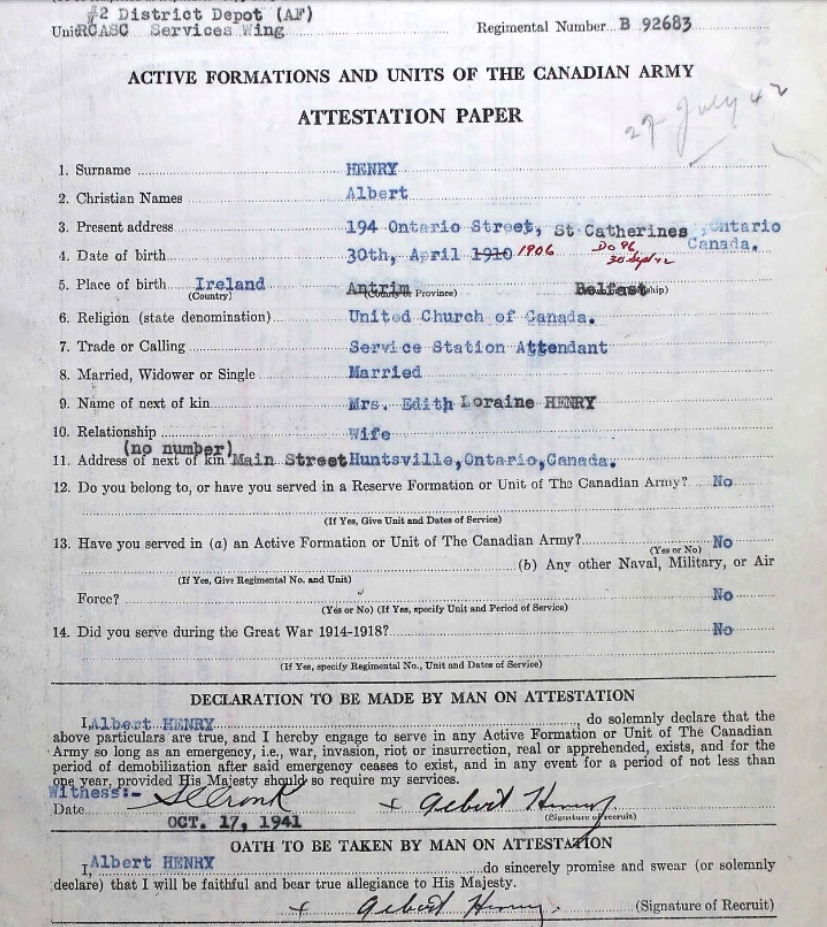 #2 District Depot (AF)
Unit RCASC Services Wing Regimental Number B 92683
ACTIVE FORMATIONS AND UNITS OF THE CANADIAN ARMY
ATTESTATION PAPER
27 July 42
1. Surname HENRY
2. Christian Names Albert
3. Present address 194 Ontario Street, St Catherines, Ontario
Canada.
4. Date of birth 30th, April 1910 1906 Do 96
30 Sept 42
5. Place of birth Ireland Antrim Belfast
(Country) (County or Province)
6. Religion (state denomination) United Church of Canada.
7. Trade or Calling Service Station Attendant
8. Married, Widower or Single Married
9. Name of next of kin Mrs. Edith Loraine HENRY
10. Relationship Wife
(no number)
11. Address of next of kin Main Street Huntsville, Ontario, Canada.
12. Do you belong to, or have you served in a Reserve Formation or Unit of The Canadian Army? No
(If Yes, Give Unit and Dates of Service)
13. Have you served in (a) an Active Formation or Unit of The Canadian Army? No
(Yes or No)
(b) Any other Naval, Military, or Air
(If Yes, Give Regimental No. and Unit)
Force? No
(Yes or No) (If Yes, specify Unit and Period of Service)
14. Did you serve during the Great War 1914-1918? No
(If Yes, specify Regimental No., Unit and Dates of Service)
DECLARATION TO BE MADE BY MAN ON ATTESTATION
I, Albert HENRY, do solemnly declare that the
above particulars are true, and I hereby engage to serve in any Active Formation or Unit of The Canadian
Army so long as an emergency, i.e., war, invasion, riot or insurrection, real or apprehended, exists, and for the
period of demobilization after said emergency ceases to exist, and in any event for a period of not less than
one year, provided His Majesty should so require my services.
Witness:-
Date + Albert Henry
(Signature of recruit)
OCT. 17, 1941
OATH TO BE TAKEN BY MAN ON ATTESTATION
I, Albert HENRY do sincerely promise and swear (or solemnly
declare) that I will be faithful and bear true allegiance to His Majesty.
+ Albert Henry. (Signature of Recruit)